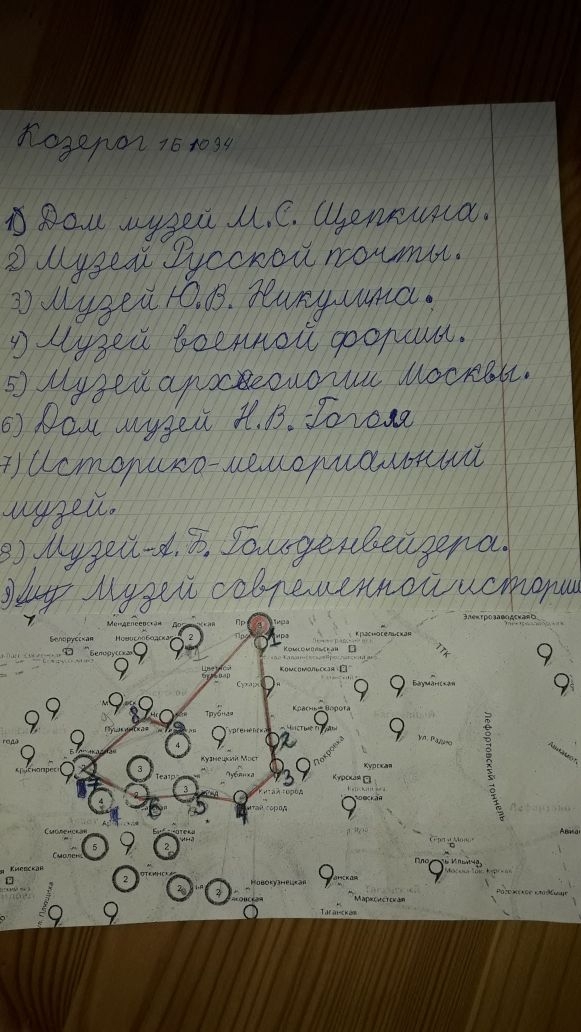 Козерог 1Б 1034
1) Дом музей М.С. Щепкина.
2) Музей Русской почты.
3) Музей Ю.В. Никулина.
4) Музей военной формы.
5) Музей археологии Москвы.
6) Дом музей Н.В. Гоголя
7) Историко-мемориальный
музей.
8) Музей А.Б. Гольденвейзера.
9) Музей современной истории
Менделеевская
Электрозаводская
Белорусская
Новослободская
1
Красносельская
Комсомольская
ТТК
Белорусская
Комсомольская
Цветной
бульвар
Бауманская
Красные Ворота
8
9
Трубная
Пушкинская
2
Чистые пруды
Ул. Радио
4
Кузнецкий Мост
Покровка
Лефортовский тоннель
3
Театра
Лубянка
3
Курская
7
Китай-город
Курская
3
6
5
4
Китай-город
4
Смоленская
Библиотека
5
2
Киевская
Площадь Ильича
Москва-Тов. Курская
2
Новокузнецкая
2
2
Марксистская
Рогожское кладбище
Таганская